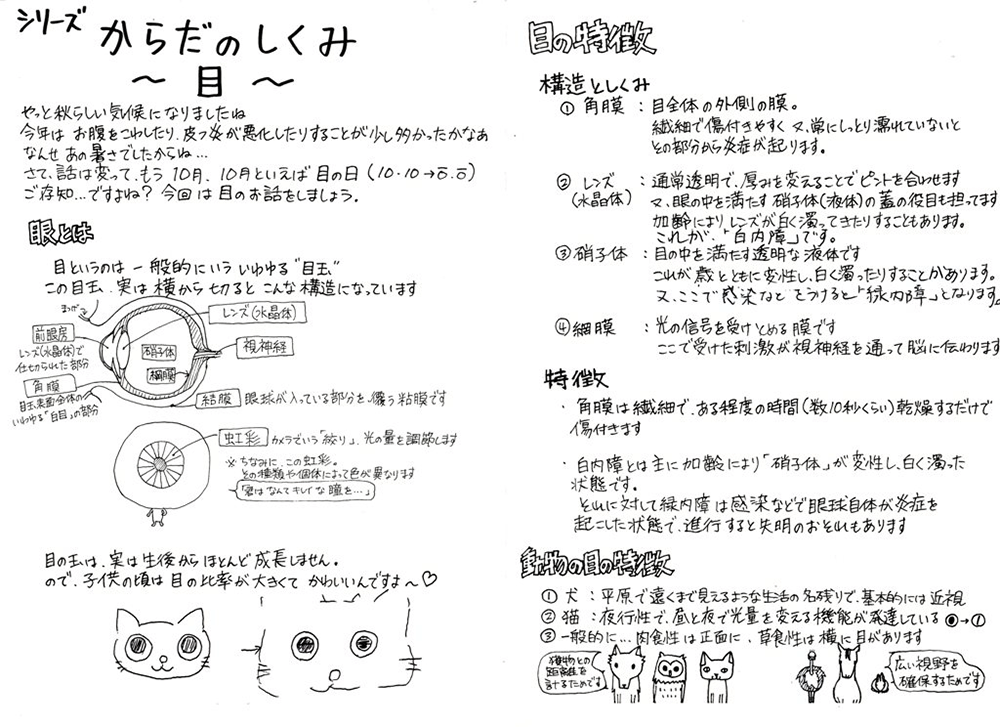 シリーズ
からだのしくみ
～目～
やっと秋らしい気候になりましたね
今年は お腹をこわしたり、皮フ炎が悪化したりすることが少し多かったかなぁ
なんせ あの暑さでしたからね…
さて、話は変って、もう10月、10月といえば 目の日（10・10→
ご存知…ですよね？ 今回は目のお話をしましょう。
眼とは
目というのは 一般的にいう いわゆる"目玉"
この目玉、実は横から切ると こんな構造になっています
まつげ
レンズ（水晶体）
前眼房
レンズ（水晶体）で
仕切られた部分
硝子体
視神経
網膜
角膜
目玉表面全体の
いわゆる「白目」の部分
結膜 眼球が入っている部分を覆う粘膜です
虹彩 カメラでいう「絞り」、光の量を調節します
※ちなみに、この虹彩。
その種類や個体によって色が異なります
「君はなんてキレイな瞳を…」
目の玉は、実は生後からほとんど成長しません。
ので、子供の頃は目の比率が大きくて かわいいんですよ～♡
目の特徴
構造としくみ
① 角膜：目全体の外側の膜。
繊細で傷付きやすく 又、常にしっとり濡れていないと
その部分から炎症が起ります。
② レンズ（水晶体）：通常透明で、厚みを変えることでピントを合わせます
又、眼の中を満たす硝子体（液体）の蓋の役目も担ってます
加齢によりレンズが白く濁ってきたりすることもあります。
これが、「白内障」です。
③ 硝子体：目の中を満たす透明な液体です
これが歳とともに変性し、白く濁ったりすることがあります。
又、ここで感染などをうけると「緑内障」となります。
④ 網膜：光の信号を受けとめる膜です
ここで受けた刺激が視神経を通って脳に伝わります
特徴
・角膜は繊細で、ある程度の時間（数10秒くらい）乾燥するだけで
傷付きます
・白内障とは主に加齢により「硝子体」が変性し、白く濁った
状態です。
それに対して緑内障は感染などで眼球自体が炎症を
起こした状態で、進行すると失明のおそれもあります
動物の目の特徴
① 犬：平原で遠くまで見えるような生活の名残りで、基本的には近視
② 猫：夜行性で、昼と夜で光量を変える機能が発達している
③ 一般的に…肉食性は正面に、草食性は横に目があります
獲物との
距離を
計るためです
広い視野を
確保するためです